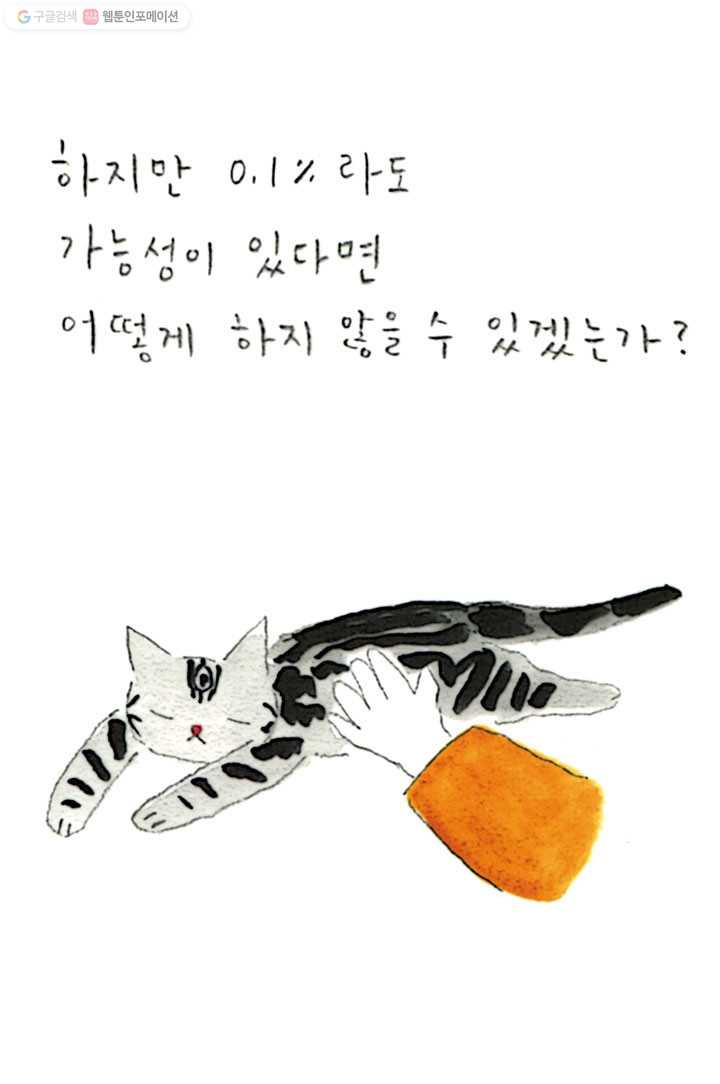 구글검색 웹툰인포메이션
하지만 0.1%라도
가능성이 있다면
어떻게 하지 않을 수 있겠는가?